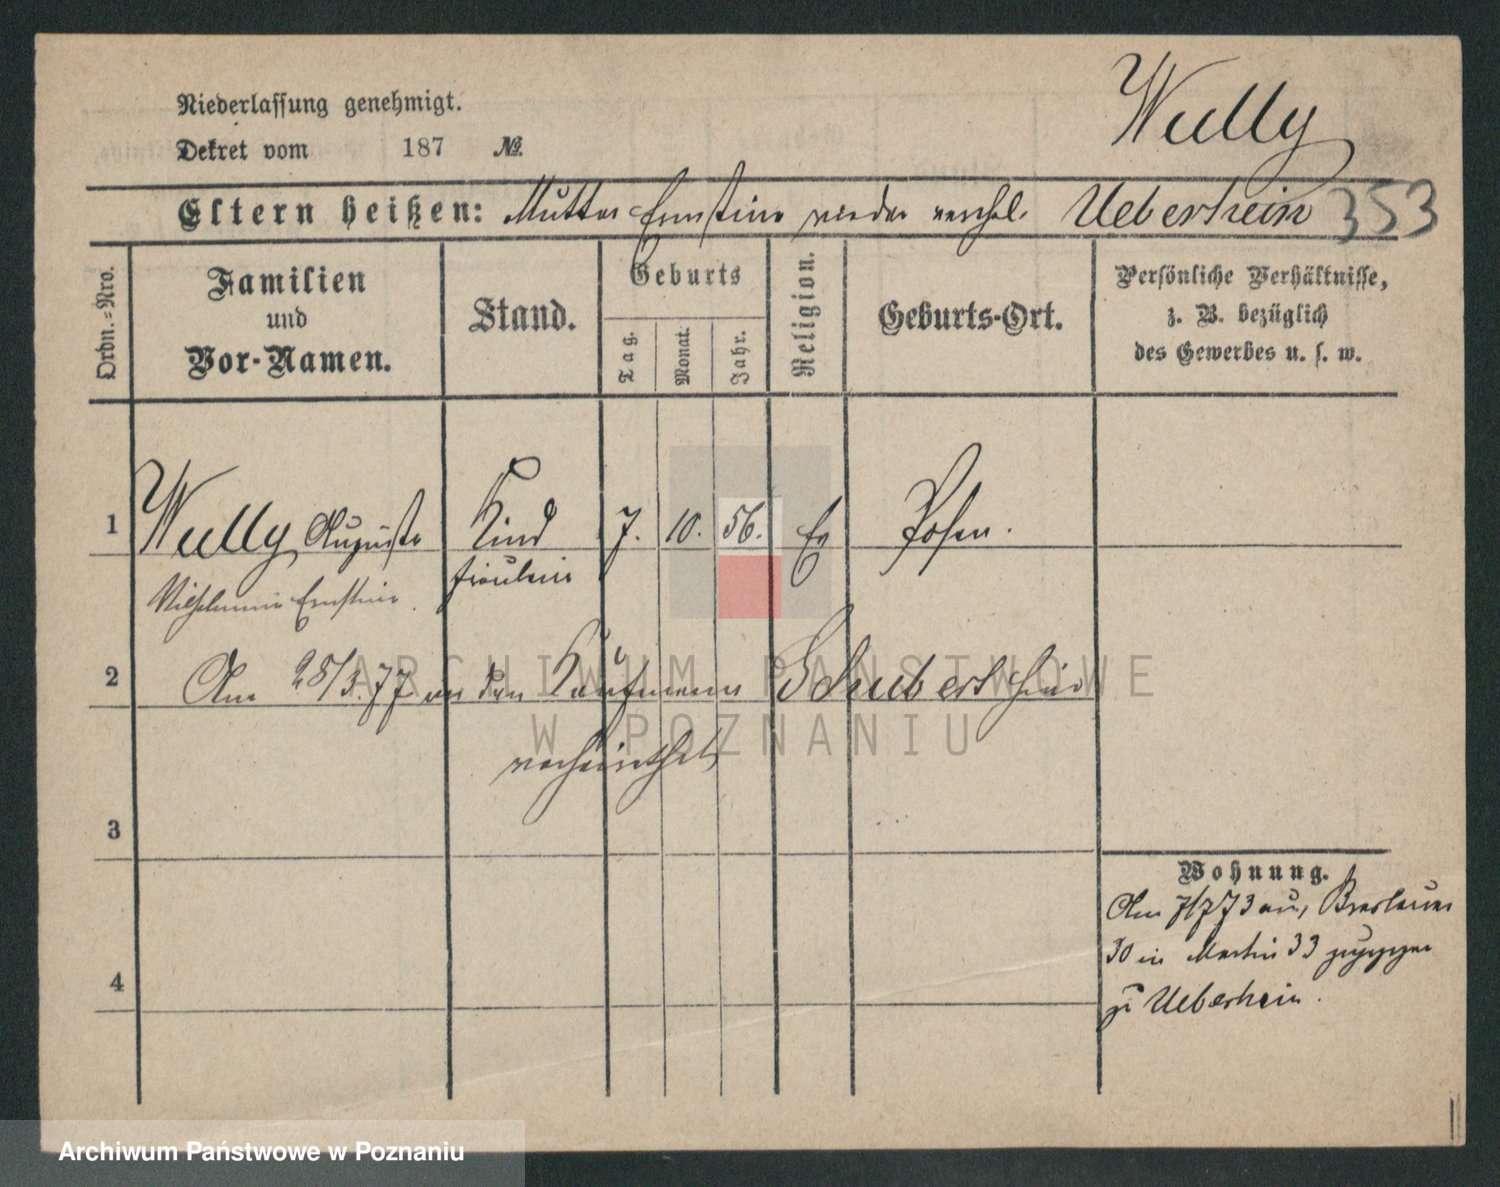 Wully
Niederlassung genehmigt.
Dekret vom 187 No.
Eltern heißen: Mutter Ernestine wieder verehel. Ueberhein 353
Ordn.-Nro.
Familien
und
Vor-Namen.
Stand.
Geburts
Tag.
Monat.
Jahr.
Religion.
Geburts-Ort.
Persönliche Verhältnisse,
z. B. bezüglich
des Gewerbes u. s. w.
1 Wully Auguste Kind 7. 10. 56. Ev Posen.
Wilhelmine Ernestine Fräulein
2 Am 28/3.77 an den Kaufmann Schubert hier
verheirathet
3
4
Wohnung.
Am 7/7 73 aus Breslauer
30 in Martin 33 gezogen
zu Ueberhein.
ARCHIWUM PAŃSTWOWE
W POZNANIU
Archiwum Państwowe w Poznaniu